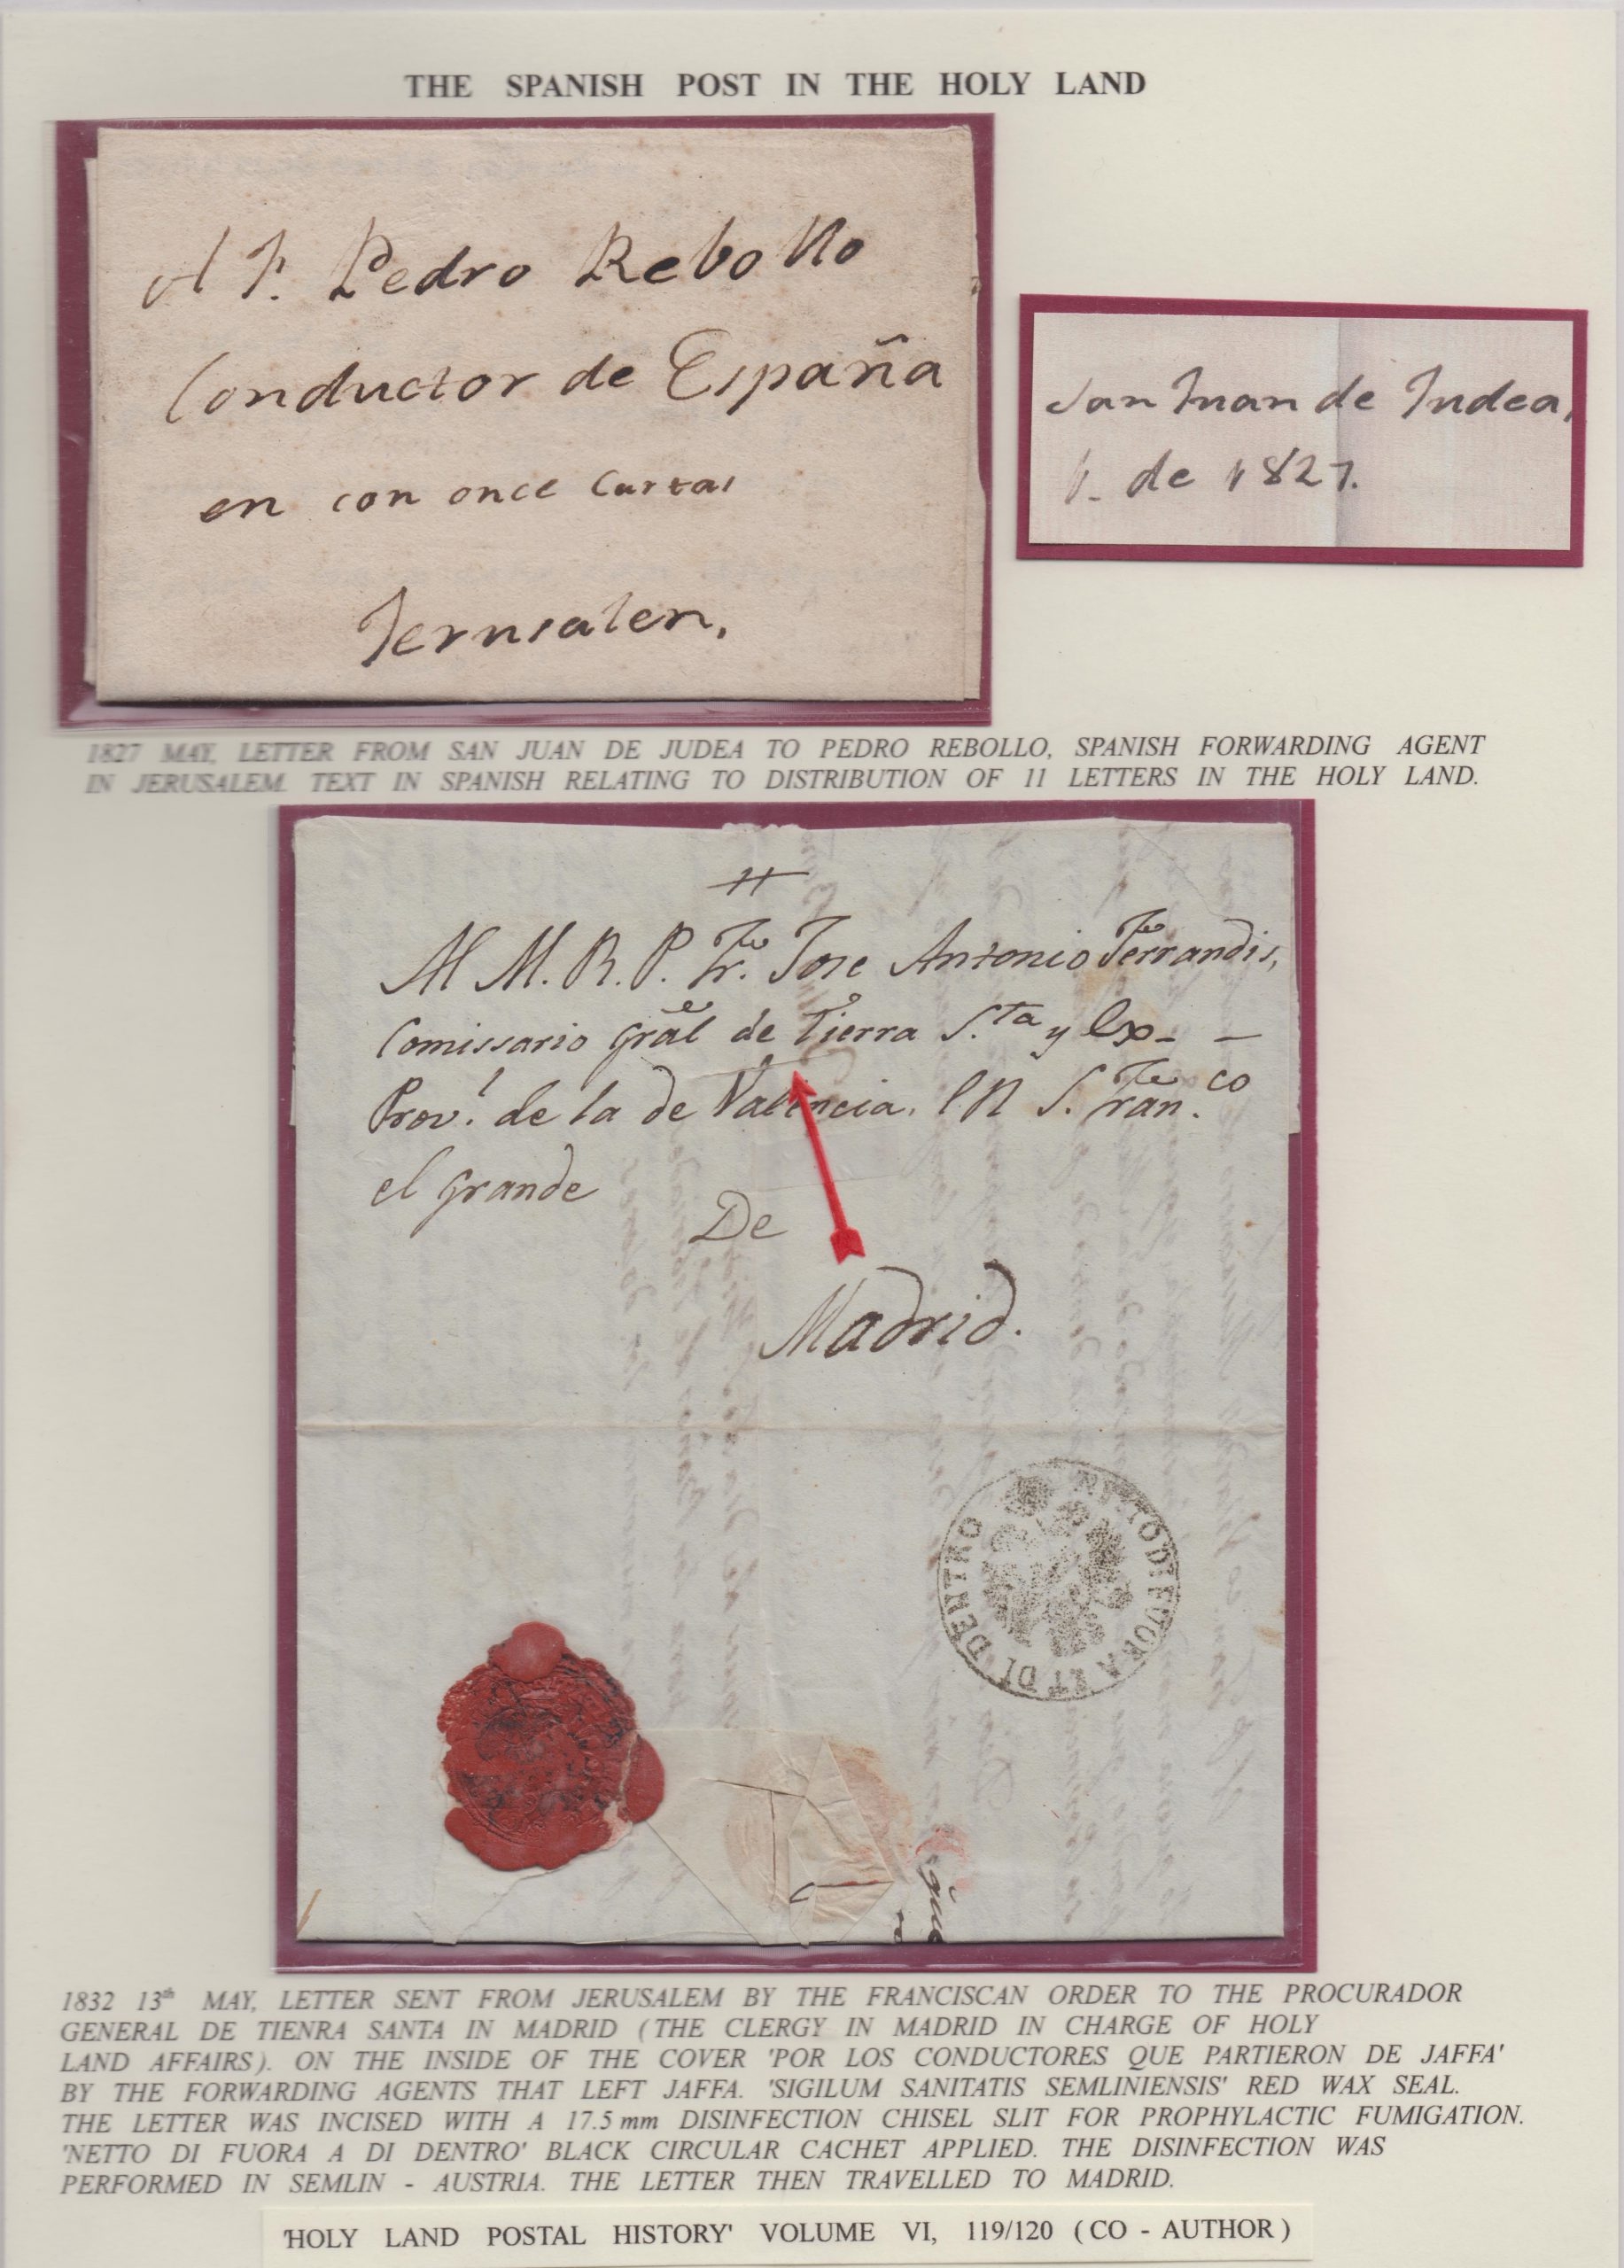 THE SPANISH POST IN THE HOLY LAND
A F. Pedro Rebollo
Conductor de España
en con once Cartas
Jerusalen,
San Juan de Judea,
de 1827.
1827 MAY, LETTER FROM SAN JUAN DE JUDEA TO PEDRO REBOLLO, SPANISH FORWARDING AGENT
IN JERUSALEM. TEXT IN SPANISH RELATING TO DISTRIBUTION OF 11 LETTERS IN THE HOLY LAND.
Al M. R. P. Fr. Jose Antonio Ferrandis,
Comissario Gral de Tierra S.ta y Ex-
Prov.l de la de Valencia. EN S. Fran.co
el Grande
De
Madrid.
NETTO DI FUORA ET DI DENTRO
que
1832 13th MAY, LETTER SENT FROM JERUSALEM BY THE FRANCISCAN ORDER TO THE PROCURADOR
GENERAL DE TIENRA SANTA IN MADRID (THE CLERGY IN MADRID IN CHARGE OF HOLY
LAND AFFAIRS). ON THE INSIDE OF THE COVER 'POR LOS CONDUCTORES QUE PARTIERON DE JAFFA'
BY THE FORWARDING AGENTS THAT LEFT JAFFA. 'SIGILUM SANITATIS SEMLINIENSIS' RED WAX SEAL.
THE LETTER WAS INCISED WITH A 17.5 mm DISINFECTION CHISEL SLIT FOR PROPHYLACTIC FUMIGATION.
'NETTO DI FUORA A DI DENTRO' BLACK CIRCULAR CACHET APPLIED. THE DISINFECTION WAS
PERFORMED IN SEMLIN - AUSTRIA. THE LETTER THEN TRAVELLED TO MADRID.
'HOLY LAND POSTAL HISTORY' VOLUME VI, 119/120 (CO - AUTHOR)